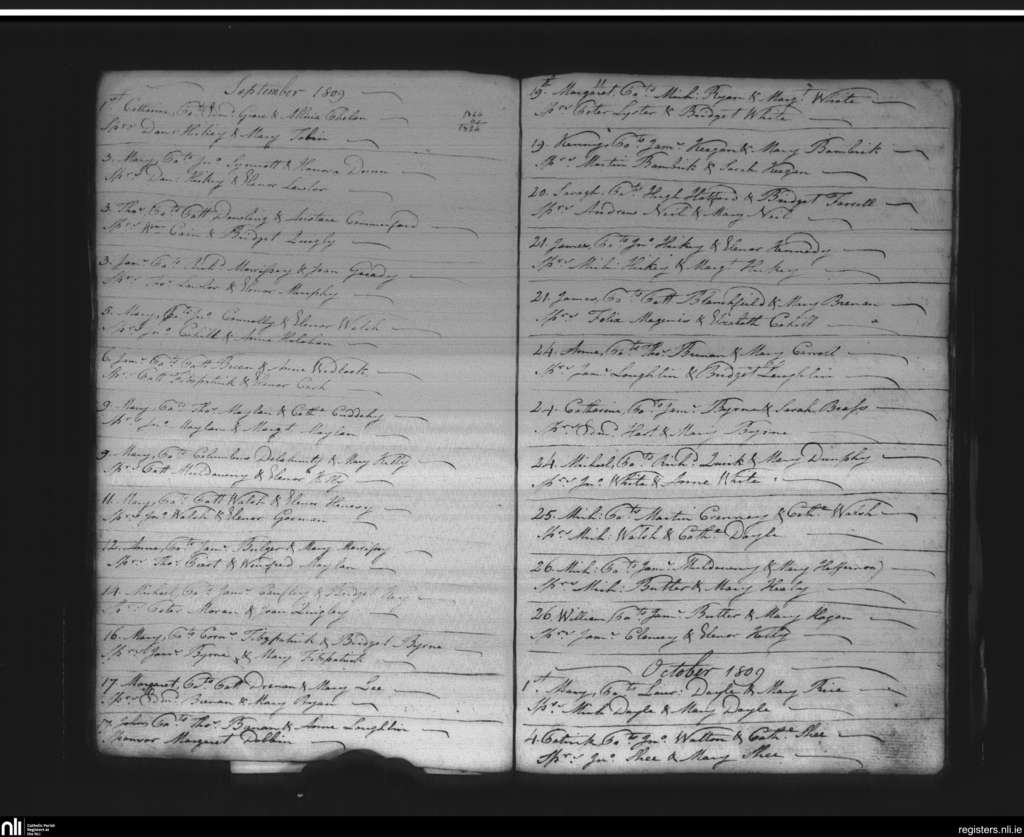 September 1809
1st Catherine, Co to Edm: Grace & Alicia Phelan
Sprs Dan: Hickey & Mary Tobin
3. Mary, Co to Jno Synnott & Honora Dunn
Sprs Dan: Hickey & Elenor Lawlor
3. Thos, Co to Patt Dowling & Anstace Commerford
Sprs Wm Cain & Bridget Quigly
3. Jams Co to Richd Morrissey & Joan Grady
Sprs Thos Lawlor & Elenor Murphy
5. Mary, Co to Jno Connolly & Elenor Walsh
Sprs Jno Cahill & Anne Holohan
6. Jams Co to Patt Breen & Anne
Sprs Patt Fitzpatrick & Elenor Cash
9. Mary, Co to Thos Naylan & Cathe Cuddehy
Sprs Jno Naylan & Margt Naylan
9. Mary, Co to Columbus Delahunty & Mary Kelly
Sprs Patt Muldowney & Elenor Kelly
11. Mary, Co to Patt Walsh & Elenor
Sprs Jno Walsh & Elenor Gorman
12. Anne, Co to Jams Bulger & Mary Morrissey
Sprs Thos & Winifred Naylan
14. Michael, Co to Jams & Bridget
Sprs Peter Moran & Joan Quigley
16. Mary, Co to Corns Fitzpatrick & Bridget Byrne
Sprs Jams Byrne & Mary Fitzpatrick
17. Margaret, Co to Patt Drenan & Mary Lee
Sprs Edm: Brenan & Mary Ryan
17. John, Co to Thos Brenan & Anne Loughlin
Sponsor Margaret Dobbin
19th Margaret, Co to Mich: Ryan & Margt White
Sprs Peter Lyster & Bridget White
19. Co to Jams Keegan & Mary Bambrick
Sprs Martin Bambrick & Sarah Keegan
20. Saragh, Co to Hugh & Bridget Farrell
Sprs Andrew Neil & Mary Neil
21. James, Co to Jno Hickey & Elenor Kennedy
Sprs Mich: Hickey & Margt Hickey
21. James, Co to Patt Blanchfield & Mary Brenan
Sprs Felix Magenis & Elizabeth Cahill
24. Anne, Co to Thos Brenan & Mary Carroll
Sprs Jams Loughlin & Bridget Loughlin
24. Catharine, Co to Jams Byrne & Sarah
Sprs Edm: Hart & Mary Byrne
24. Michael, Co to Richd Quirk & Mary Dunphy
Sprs Jno White & Anne White
25. Mich: Co to Martin & Cathe Walsh
Sprs Mich: Walsh & Cathe Doyle
26. Mich: Co to Jams Muldowney & Mary
Sprs Mich: Butler & Mary Healy
26. William, Co to Jams Butler & Mary Hogan
Sprs Jams Clancy & Elenor Kelly
October 1809
1st Mary, Co to Laur: Doyle & Mary Rice
Sprs Mich: Doyle & Mary Doyle
4. Patrick, Co to Jno Walton & Cathe Shee
Sprs Jno Shee & Mary Shee
nli Catholic Parish Registers at the NLI
registers.nli.ie